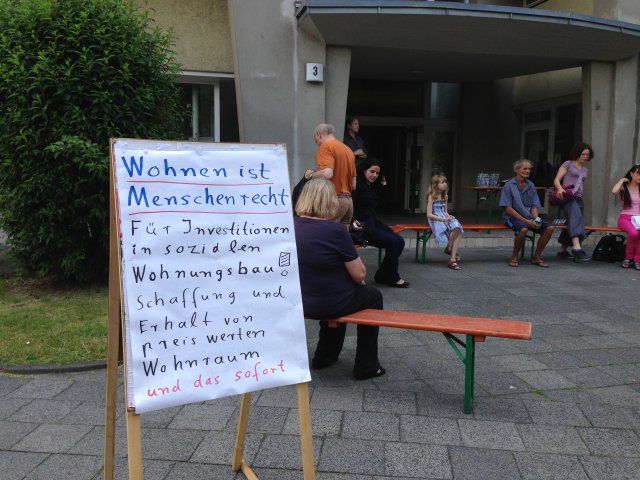 Wohnen ist
Menschenrecht
Für Investitionen
in sozialen
Wohnungsbau!
Schaffung und
Erhalt von
preis werten
Wohnraum
und das sofort
3